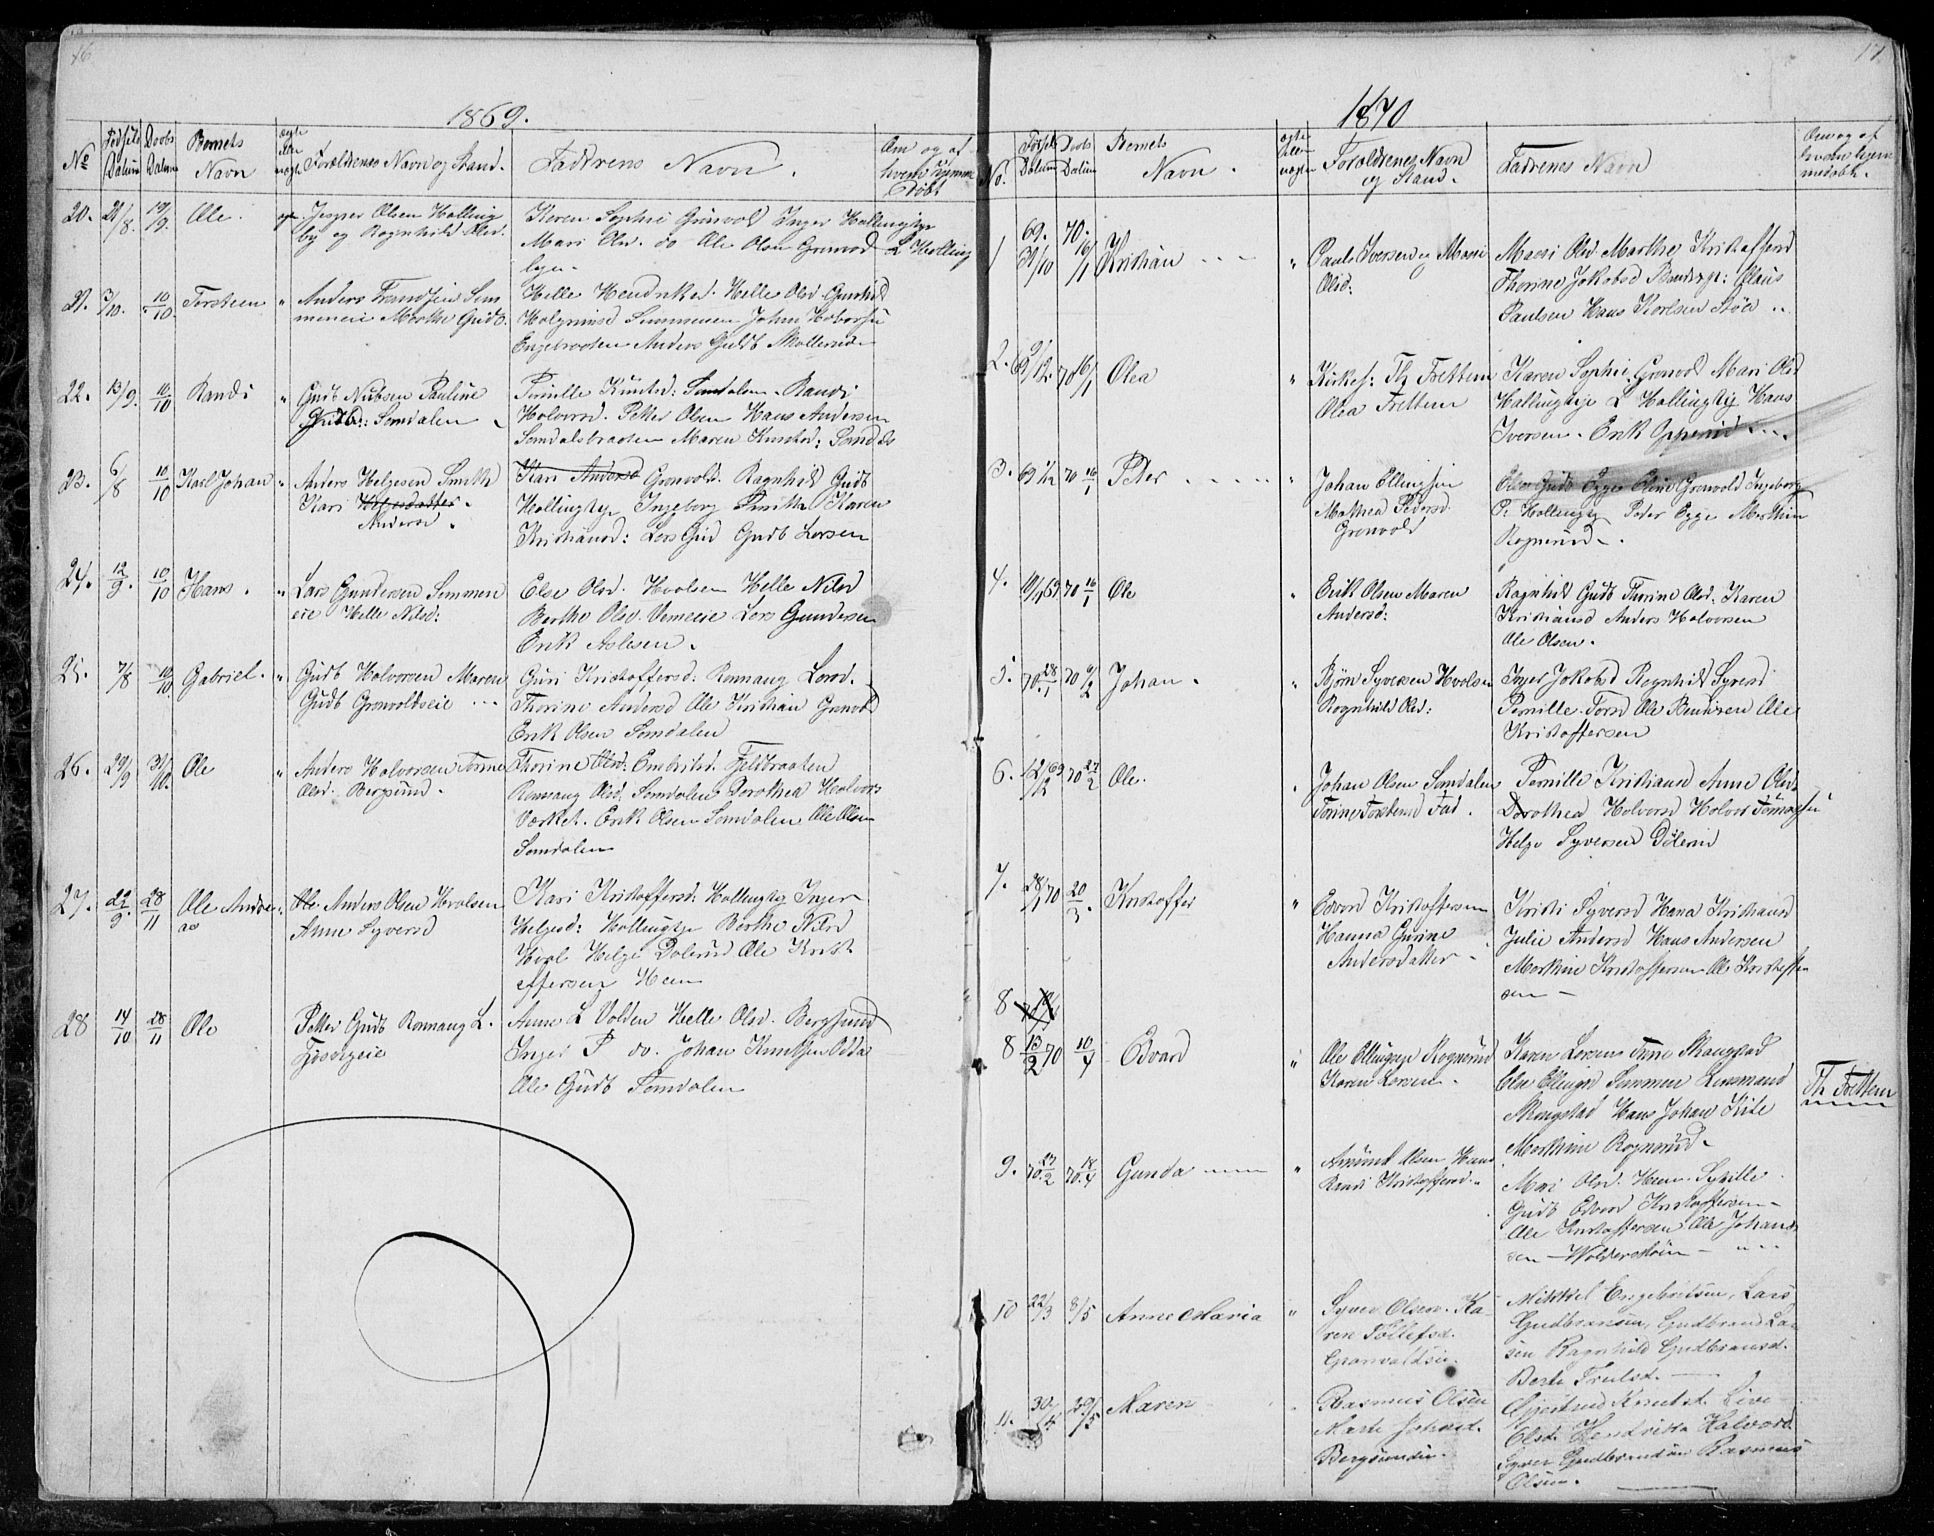 16
1869.
No Fødsels Datum Daabs Datum Barnets Navn Forældrenes Navn og Stand. Faddrenes Navn. Om og af hvem hjemmedøbt
20. 21/8. 19/9. Ole. Jesper Olsen Halling
by og Ragnhild Olsd.
Karen Sophie Grønvold Inger Hallingbye
Mari Olsd. do Ole Olsen Grønvold
L Halling
bye.
21. 3/10. 10/10. Torsteen " Anders Frandsen Sim
meneie Marthe Gudb.
Helle Hendriksd. Helle Olsd. Gunhild
Halgrimsd Simmenen Johan Haavorsen
Engebraaten Anders Gudb Skollerud
22. 13/9. 10/10 Randi " Gudb Nubsen Pauline
Gudb: Somdalen
Pernille Knutsd: Somdalen Randi
Halvorsd. Petter Olsen Hans Andersen
Somdalsbraaten Maren Knutsd: Somdal
23. 6/8 10/10 Karl Johan " Anders Helgesen Smith
Kari Helgesdatter
Andersd.
Kari Andersd Grønvold. Ragnhild Gudb
Hallingbye Ingeborg Smith Karen
Kristiansd: Lars Gud Gudb Larsen
24. 12/9. 10/10 Hans. " Lars Gundersen Simmen
eie Helle Nilsd:
Else Olsd. Hvalsen Helle Nilsd
Berthe Olsd. Vemeeie Lars Gundersen
Erik Aslesen.
25. 7/8 10/10 Gabriel. " Gudb Halvorsen Maren
Gudb Grønvoldseie
Guri Kristoffersd: Ronnaug Larsd.
Thorine Andersd Ole Kristian Grønvold
Erik Olsen Somdalen
26. 29/9 31/10. Ole " Anders Halvorsen Torine
Olsd. Bergsund.
Thorine Olsd: Embrikd. Fjeldbraaten
Ronnaug Olsd: Somdalen Dorothea Halvors
Værket. Erik Olsen Somdalen Ole Olsen
Somdalen
27. 22/9. 28/11 Ole Andre
as
Ole Anders Olsen Hvalsen
Anne Syversd
Kari Kristoffersd: Hallingby Inger
Helgesd: Hallingbye Berthe Nilsd
Hval Helge Dolerud Ole Krist
offersen Heen
28 14/10 28/11 Ole Petter Gudb Ronnaug L.
Anne L Volden Helle Olsd. Bergsund
Inger P do. Johan Knutsen Odda
Ole Gudb Somdalen
17.
1870
No. Fødsels Datum Daabs Datum Barnets Navn. Forældrenes Navn og Stand. Fadrenes Navn Om og af hvem hjemmedøbt.
1 69. 31/10 70. 16/1 Kristian " Paul Iversen og Mari
Olsd:
Mari Olsd Marthe Kristoffersd
Thorine Jakobsd Claus
Paulsen Hans Karlsen Støa
2. 69 9/12. 70 16/1 Olea " Kirkes: Th Frettem
Olea Frettem
Karen Sophie Grønvold Mari Olsd
Hallingbye L Hallingby Hans
Iversen. Erik Opperud
3. 69 1/12 70 16/1 Peter " Johan Ellingsen
Mathea Pedersd.
Grønvold
Olea Gudb Egge Eline Grønvold Ingeborg
P. Hallingby Peder Egge Marthin
Rognerud.
4. 69 70 16/1 Ole " Erik Olsen Maren
Andersd:
Ragnhild Gudb Thorine Olsd. Karen
Kristiansd Anders Halvorsen
Ole Olsen.
5. 70. 28/1 70 6/2 Johan. " Bjørn Syversen Hvalsen
Ragnhild Olsd:
Inger Jakobsd Ragnhild Syversd
Pernille Torsd Ole Bentsen Ole
Kristoffersen
6. 12/12 69 70 27/2 Ole. Johan Olsen Somdalen
Torine Torstensd Fad.
Pernille Kristiansd Anne Olsd
Dorothea Halvorsd Halvor Tomassen
Helge Syversen Dølerud
7. 28/1 70 20/3. Kristoffer " Edvard Kristoffersen
Hanna Gurine
Andersdatter
Kristi Syversd Hana Kristiansd
Julie Andersd Hans Andersen
Marthin Kristoffersen Ole Kristoffer
sen
8
8 13/2 70 10/4 Edvard " Ole Ellingsen Rognerud
Karen Larsen.
Karen Larsens Trine Skaugstad
Else Ellingsd Simmen Linsmand
Skougstad Hans Johan Kile
Marthin Rognerud.
Th Frettem
9. 70. 27/2 70. 18/4 Gunda " Amund Olsen Heen
Randi Kristoffersd.
Mari Olsd. Heen. Sybille
Gudb Edvard Kristoffersen
Ole Kristoffersen Ole Johan
sen
10 22/3 8/5 Anne Maria " Syver Olsen. Ka
ren Tollefsd.
Granvaldseie.
Mikkel Engebretsen, Lars
Gudbransen, Gudbrand Lar
sen Ragnhild Gudbransd.
Berte Trulsd.
11. 30/4 29/5 Maren Rasmus Olsen
Marte Johansd.
Bergsundeie.
Gjertrud Knutsd. Live
Olsd. Hendrikka Halvorsd
Syver Gudbrandsen Rasmus
Olsen.